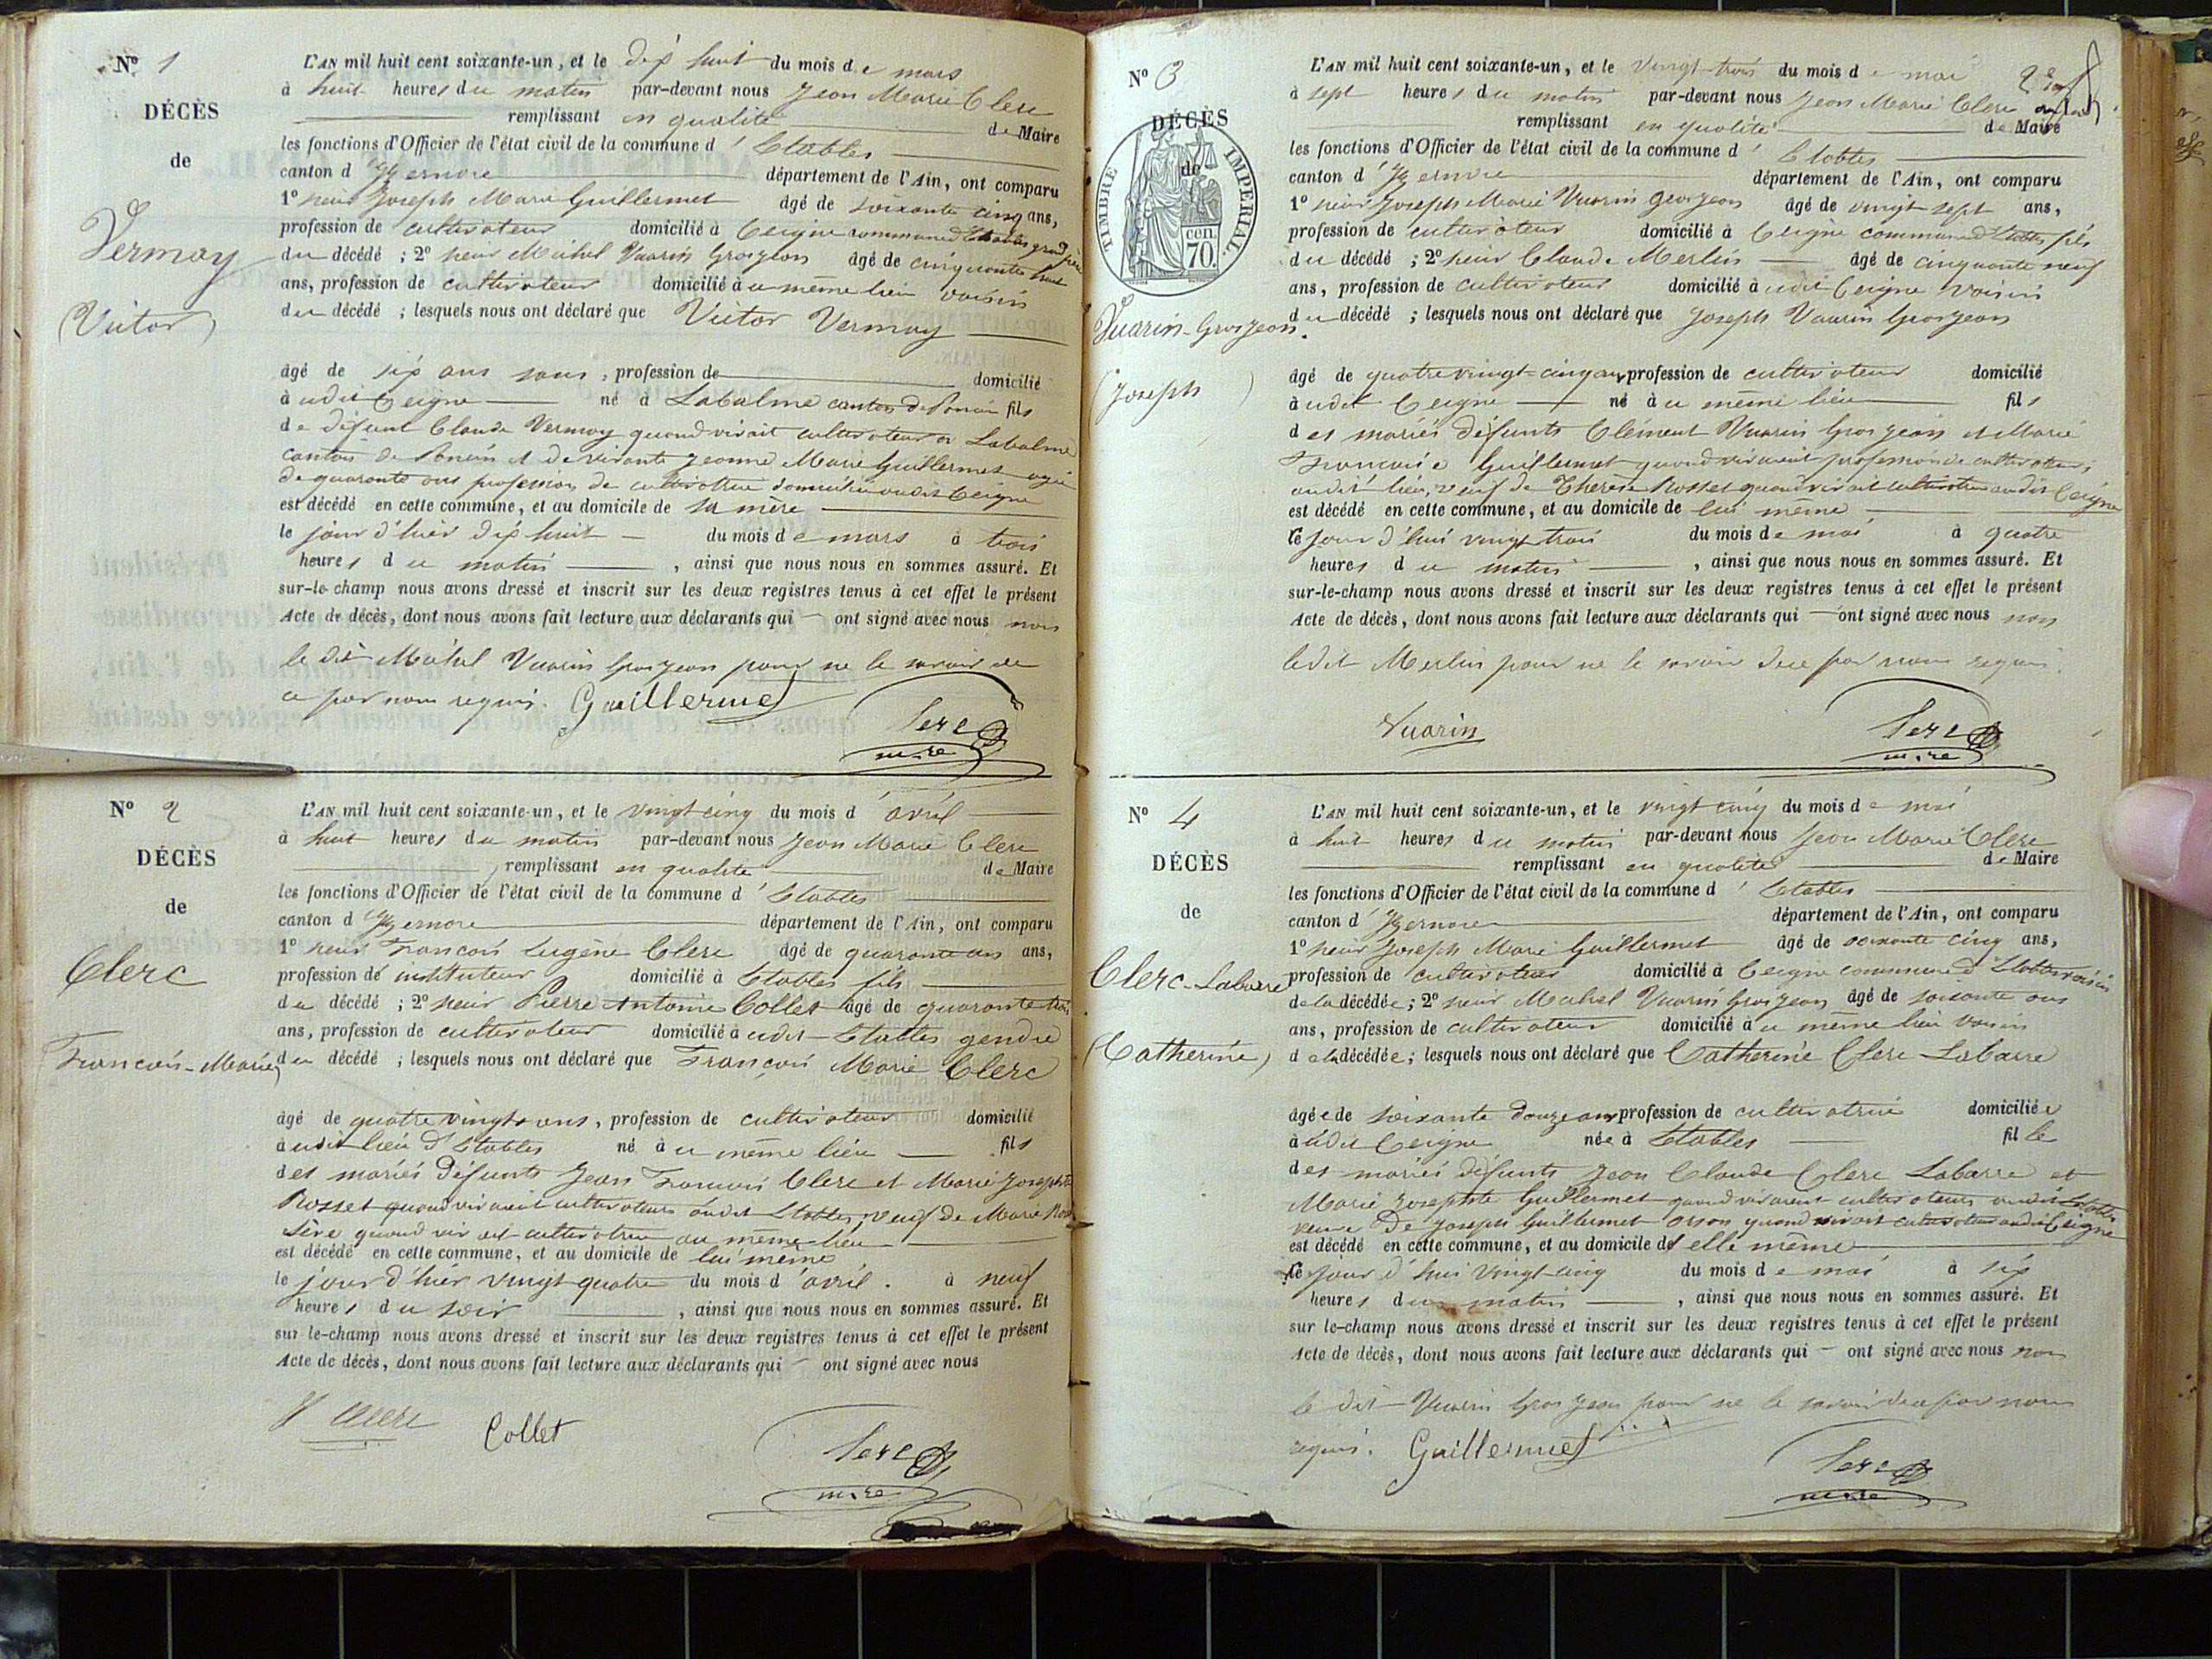 N° 1
DÉCÈS
de
Vermay
(Victor)
L'AN mil huit cent soixante-un, et le dix huit du mois de mars
à huit heures du matin par-devant nous Jean Marie Clerc
remplissant en qualité de Maire
les fonctions d'Officier de l'état civil de la commune d'Etables
canton d'Izernore département de l'Ain, ont comparu
1° sieur Joseph Marie Guillermet âgé de soixante cinq ans,
profession de cultivateur domicilié à Ceigne commune d'Etables grand père
du décédé ; 2° sieur Michel Vuarin Grosjean âgé de cinquante huit
ans, profession de cultivateur domicilié à u même lieu voisin
du décédé ; lesquels nous ont déclaré que Victor Vermay
âgé de six ans sans, profession de domicilié
à udit Ceigne né à Labalme canton de Poncin fils
de défunt Claude Vermay quand vivait cultivateur à Labalme
canton de Poncin et de vivante Jeanne Marie Guillermet agée
de quarante ans profession de cultivatrice domiciliée audit Ceigne
est décédé en cette commune, et au domicile de sa mère
le jour d'hier dix huit du mois de mars à trois
heures du matin , ainsi que nous nous en sommes assuré. Et
sur-le-champ nous avons dressé et inscrit sur les deux registres tenus à cet effet le présent
Acte de décès, dont nous avons fait lecture aux déclarants qui ont signé avec nous non
le dit Michel Vuarin Grosjean pour ne le savoir de
ce par nous requis. Guillermet
Clerc
maire
N° 2
DÉCÈS
de
Clerc
François-Marie)
L'AN mil huit cent soixante-un, et le vingt cinq du mois d'avril
à huit heures du matin par-devant nous Jean Marie Clerc
remplissant en qualité de Maire
les fonctions d'Officier de l'état civil de la commune d'Etables
canton d'Izernore département de l'Ain, ont comparu
1° sieur François Eugène Clerc âgé de quarante un ans,
profession de instituteur domicilié à Etables fils
du décédé ; 2° sieur Pierre Antoine Collet âgé de quarante trois
ans, profession de cultivateur domicilié à udit Etables gendre
du décédé ; lesquels nous ont déclaré que François Marie Clerc
âgé de quatre vingts ans, profession de cultivateur domicilié
à udit lieu d'Etables né à u même lieu fils
des mariés défunts Jean François Clerc et Marie Josephte
Rosset quand vivaient cultivateurs audit Etables, veuf de Marie Rose
Sève quand vivait cultivatrice au même lieu
est décédé en cette commune, et au domicile de lui même
le jour d'hier vingt quatre du mois d'avril. à neuf
heures du soir , ainsi que nous nous en sommes assuré. Et
sur le-champ nous avons dressé et inscrit sur les deux registres tenus à cet effet le présent
Acte de décès, dont nous avons fait lecture aux déclarants qui ont signé avec nous
Clerc Collet
Clerc
maire
N° 3
DÉCÈS
de
TIMBRE IMPERIAL.
cen.
70.
Vuarin-Grosjean.
(Joseph)
L'AN mil huit cent soixante-un, et le vingt trois du mois de mai
à sept heures du matin par-devant nous Jean Marie Clerc
remplissant en qualité de Maire
les fonctions d'Officier de l'état civil de la commune d'Etables
canton d'Izernore département de l'Ain, ont comparu
1° sieur Joseph Marie Vuarin Grosjean âgé de vingt sept ans,
profession de cultivateur domicilié à Ceigne commune d'Etables fils
du décédé ; 2° sieur Claude Merlin âgé de cinquante neuf
ans, profession de cultivateur domicilié à udit Ceigne voisin
du décédé ; lesquels nous ont déclaré que Joseph Vuarin Grosjean
âgé de quatre vingt-cinq ans profession de cultivateur domicilié
à udit Ceigne né à u même lieu fils
des mariés défunts Clément Vuarin Grosjean et Marie
Françoise Guillermet quand vivaient profession de cultivateurs
audit lieu, veuf de Therese Rosset quand vivait cultivatrice audit Ceigne
est décédé en cette commune, et au domicile de lui même
le jour d'hui vingt trois du mois de mai à quatre
heures du matin , ainsi que nous nous en sommes assuré. Et
sur-le-champ nous avons dressé et inscrit sur les deux registres tenus à cet effet le présent
Acte de décès, dont nous avons fait lecture aux déclarants qui ont signé avec nous non
ledit Merlin pour ne le savoir de ce par nous requis.
Vuarin
Clerc
maire
N° 4
DÉCÈS
de
Clerc-Labarre
(Catherine)
L'AN mil huit cent soixante-un, et le vingt cinq du mois de mai
à huit heures du matin par-devant nous Jean Marie Clerc
remplissant en qualité de Maire
les fonctions d'Officier de l'état civil de la commune d'Etables
canton d'Izernore département de l'Ain, ont comparu
1° sieur Joseph Marie Guillermet âgé de soixante cinq ans,
profession de cultivateur domicilié à Ceigne commune d'Etables voisin
de la décédée ; 2° sieur Michel Vuarin Grosjean âgé de soixante ans
ans, profession de cultivateur domicilié à u même lieu voisin
de la décédée ; lesquels nous ont déclaré que Catherine Clerc Labarre
âgée de soixante douze ans profession de cultivatrice domiciliée
à udit Ceigne née à Etables fille
des mariés défunts Jean Claude Clerc Labarre et
Marie Josephte Guillermet quand vivaient cultivateurs audit Etables
veuve de Joseph Guillermet quand vivait cultivateur audit Ceigne
est décédé en cette commune, et au domicile d'elle même
le jour d'hui vingt cinq du mois de mai à six
heures du matin , ainsi que nous nous en sommes assuré. Et
sur le-champ nous avons dressé et inscrit sur les deux registres tenus à cet effet le présent
Acte de décès, dont nous avons fait lecture aux déclarants qui ont signé avec nous non
le dit Vuarin Grosjean pour ne le savoir de ce par nous
requis. Guillermet
Clerc
maire